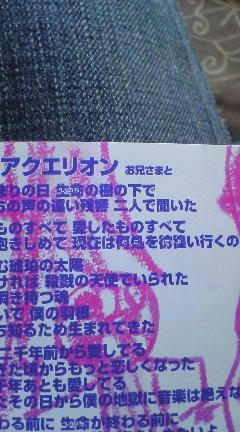 アクエリオン お兄さまと
まりの日 の樹の下で
の声の遠い残響 二人で聞いた
ものすべて 愛したものすべて
抱きしめて 現在は何処を彷徨い行くの
む琥珀の太陽
ければ 殺戮の天使でいられた
明き持つ魂
いで 僕の羽根
ち知るため生まれてきた
二千年前から愛してる
ぎた頃からもっと恋しくなった
千年あとも愛してる
その日から僕の地獄に音楽は絶えな
わる前に 生命が終わる前に